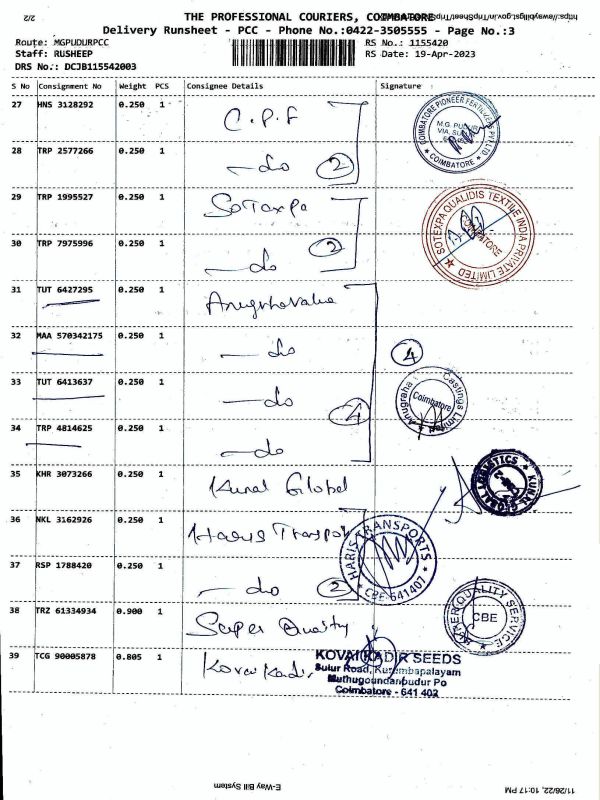 2/2
THE PROFESSIONAL COURIERS, COIMBATORE
Delivery Runsheet - PCC - Phone No.:0422-3505555 - Page No.:3
Route: MGPUDURPCC
Staff: RUSHEEP
DRS No.: DCJB115542003
RS No.: 1155420
RS Date: 19-Apr-2023
S No Consignment No Weight PCS Consignee Details Signature
27 HNS 3128292 0.250 1 C.P.F
COIMBATORE PIONEER FERTILIZERS PVT LTD.
M.G. PUDUR
COIMBATORE
28 TRP 2577266 0.250 1 —do 2
29 TRP 1995527 0.250 1 SoTexpa
SOTEXPA QUALIDIS TEXTILE INDIA PRIVATE LIMITED
COIMBATORE
30 TRP 7975996 0.250 1 —do 2
31 TUT 6427295 0.250 1
32 MAA 570342175 0.250 1 —do 4
33 TUT 6413637 0.250 1 —do 4
Anugraha Castings Limited
Coimbatore
34 TRP 4814625 0.250 1 —do
35 KHR 3073266 0.250 1 Kunal Global
KUNAL GLOBAL LOGISTICS
36 NKL 3162926 0.250 1 Haris Transpot
HARIS TRANSPORTS
CBE-641407
37 RSP 1788420 0.250 1 —do 2
38 TRZ 61334934 0.900 1 Super Quality
QUALITY SERVICE
CBE
39 TCG 90005878 0.805 1 Kovai Kadir
KOVAI KADIR SEEDS
Sulur Road, Kurumbapalayam
Muthugoundanpudur Po
Coimbatore - 641 402
E-Way Bill System
11/26/22, 10:17 PM